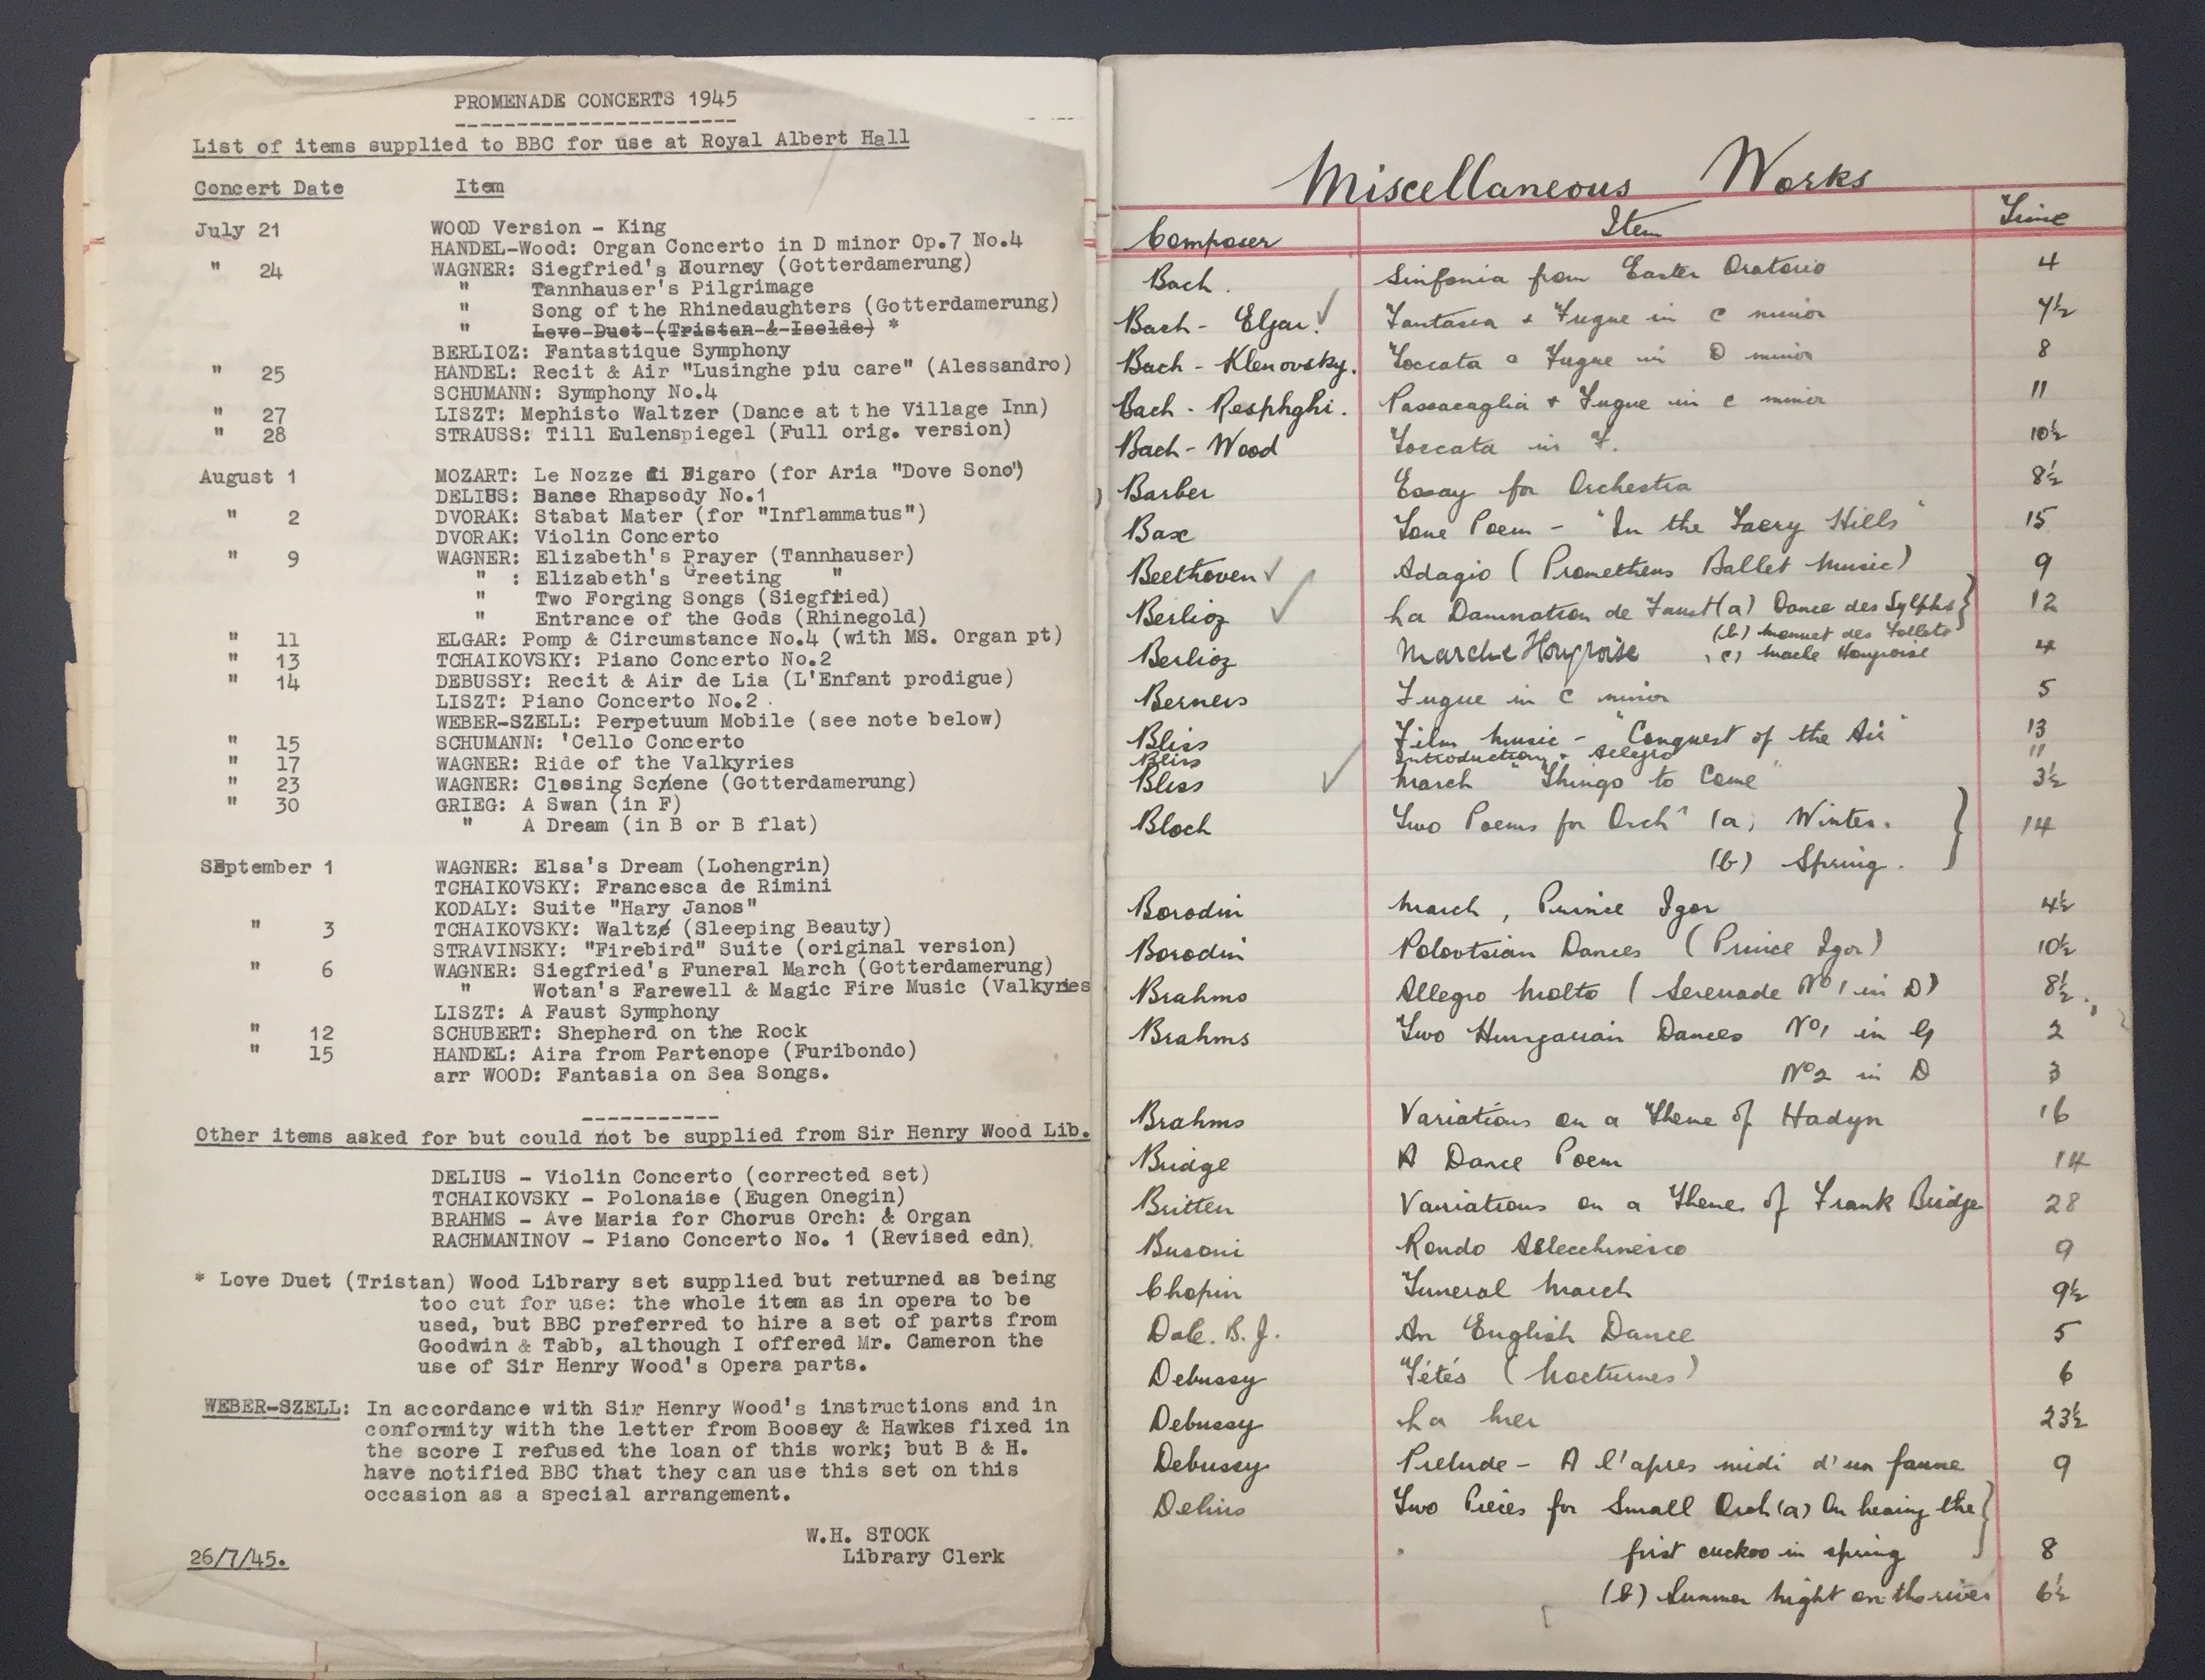 PROMENADE CONCERTS 1945
-----------------------
List of items supplied to BBC for use at Royal Albert Hall
Concert Date Item
July 21 WOOD Version - King
HANDEL-Wood: Organ Concerto in D minor Op.7 No.4
" 24 WAGNER: Siegfried's Journey (Gotterdamerung)
" Tannhauser's Pilgrimage
" Song of the Rhinedaughters (Gotterdamerung)
" Love Duet (Tristan & Isolde) *
BERLIOZ: Fantastique Symphony
" 25 HANDEL: Recit & Air "Lusinghe piu care" (Alessandro)
SCHUMANN: Symphony No.4
" 27 LISZT: Mephisto Waltzer (Dance at the Village Inn)
" 28 STRAUSS: Till Eulenspiegel (Full orig. version)
August 1 MOZART: Le Nozze di Figaro (for Aria "Dove Sono")
DELIUS: Danse Rhapsody No.1
" 2 DVORAK: Stabat Mater (for "Inflammatus")
DVORAK: Violin Concerto
" 9 WAGNER: Elizabeth's Prayer (Tannhauser)
" : Elizabeth's Greeting "
" Two Forging Songs (Siegfried)
" Entrance of the Gods (Rhinegold)
" 11 ELGAR: Pomp & Circumstance No.4 (with MS. Organ pt)
" 13 TCHAIKOVSKY: Piano Concerto No.2
" 14 DEBUSSY: Recit & Air de Lia (L'Enfant prodigue)
LISZT: Piano Concerto No.2.
WEBER-SZELL: Perpetuum Mobile (see note below)
" 15 SCHUMANN: 'Cello Concerto
" 17 WAGNER: Ride of the Valkyries
" 23 WAGNER: Closing Scene (Gotterdamerung)
" 30 GRIEG: A Swan (in F)
" A Dream (in B or B flat)
September 1 WAGNER: Elsa's Dream (Lohengrin)
TCHAIKOVSKY: Francesca de Rimini
KODALY: Suite "Hary Janos"
" 3 TCHAIKOVSKY: Waltz (Sleeping Beauty)
STRAVINSKY: "Firebird" Suite (original version)
" 6 WAGNER: Siegfried's Funeral March (Gotterdamerung)
" Wotan's Farewell & Magic Fire Music (Valkyries
LISZT: A Faust Symphony
" 12 SCHUBERT: Shepherd on the Rock
" 15 HANDEL: Aira from Partenope (Furibondo)
arr WOOD: Fantasia on Sea Songs.
-----------
Other items asked for but could not be supplied from Sir Henry Wood Lib.
DELIUS - Violin Concerto (corrected set)
TCHAIKOVSKY - Polonaise (Eugen Onegin)
BRAHMS - Ave Maria for Chorus Orch: & Organ
RACHMANINOV - Piano Concerto No. 1 (Revised edn).
* Love Duet (Tristan) Wood Library set supplied but returned as being
too cut for use: the whole item as in opera to be
used, but BBC preferred to hire a set of parts from
Goodwin & Tabb, although I offered Mr. Cameron the
use of Sir Henry Wood's Opera parts.
WEBER-SZELL: In accordance with Sir Henry Wood's instructions and in
conformity with the letter from Boosey & Hawkes fixed in
the score I refused the loan of this work; but B & H.
have notified BBC that they can use this set on this
occasion as a special arrangement.
W.H. STOCK
26/7/45. Library Clerk
Miscellaneous Works
Composer Item Time
Bach. Sinfonia from Easter Oratorio 4
Bach - Elgar. ✓ Fantasia + Fugue in C minor 4½
Bach - Klenovsky. Toccata & Fugue in D minor 8
Bach - Resphghi. Passacaglia + Fugue in C minor 11
Bach - Wood Toccata in F. 10½
Barber Essay for Orchestra 8½
Bax Tone Poem - "In the Faery Hills" 15
Beethoven ✓ Adagio (Prometheus Ballet Music) 9
Berlioz ✓ La Damnation de Faust (a) Dance des Sylphs } 12
(b) Menuet des Follets
Berlioz Marche Hongroise (c) Marche Hongroise 4
Berners Fugue in C minor 5
Bliss Film Music - "Conquest of the Air" 13
Bliss Introduction + Allegro 11
Bliss ✓ March "Things to Come" 3½
Bloch Two Poems for Orch. (a) Winter. } 14
(b) Spring.
Borodin March, Prince Igor 4½
Borodin Polovtsian Dances (Prince Igor) 10½
Brahms Allegro Molto (Serenade No 1 in D) 8½
Brahms Two Hungarian Dances No 1 in G 2
No 2 in D 3
Brahms Variations on a Theme of Hadyn 16
Bridge A Dance Poem 14
Britten Variations on a Theme of Frank Bridge 28
Busoni Rondo Allecchinesco 9
Chopin Funeral March 9½
Dale. B. J. An English Dance 5
Debussy Fétés (Nocturnes) 6
Debussy La Mer 23½
Debussy Prelude - A l'apres midi d'un faune 9
Delius Two Pieces for Small Orch (a) On hearing the }
first cuckoo in spring 8
(b) Summer Night on the river 6½